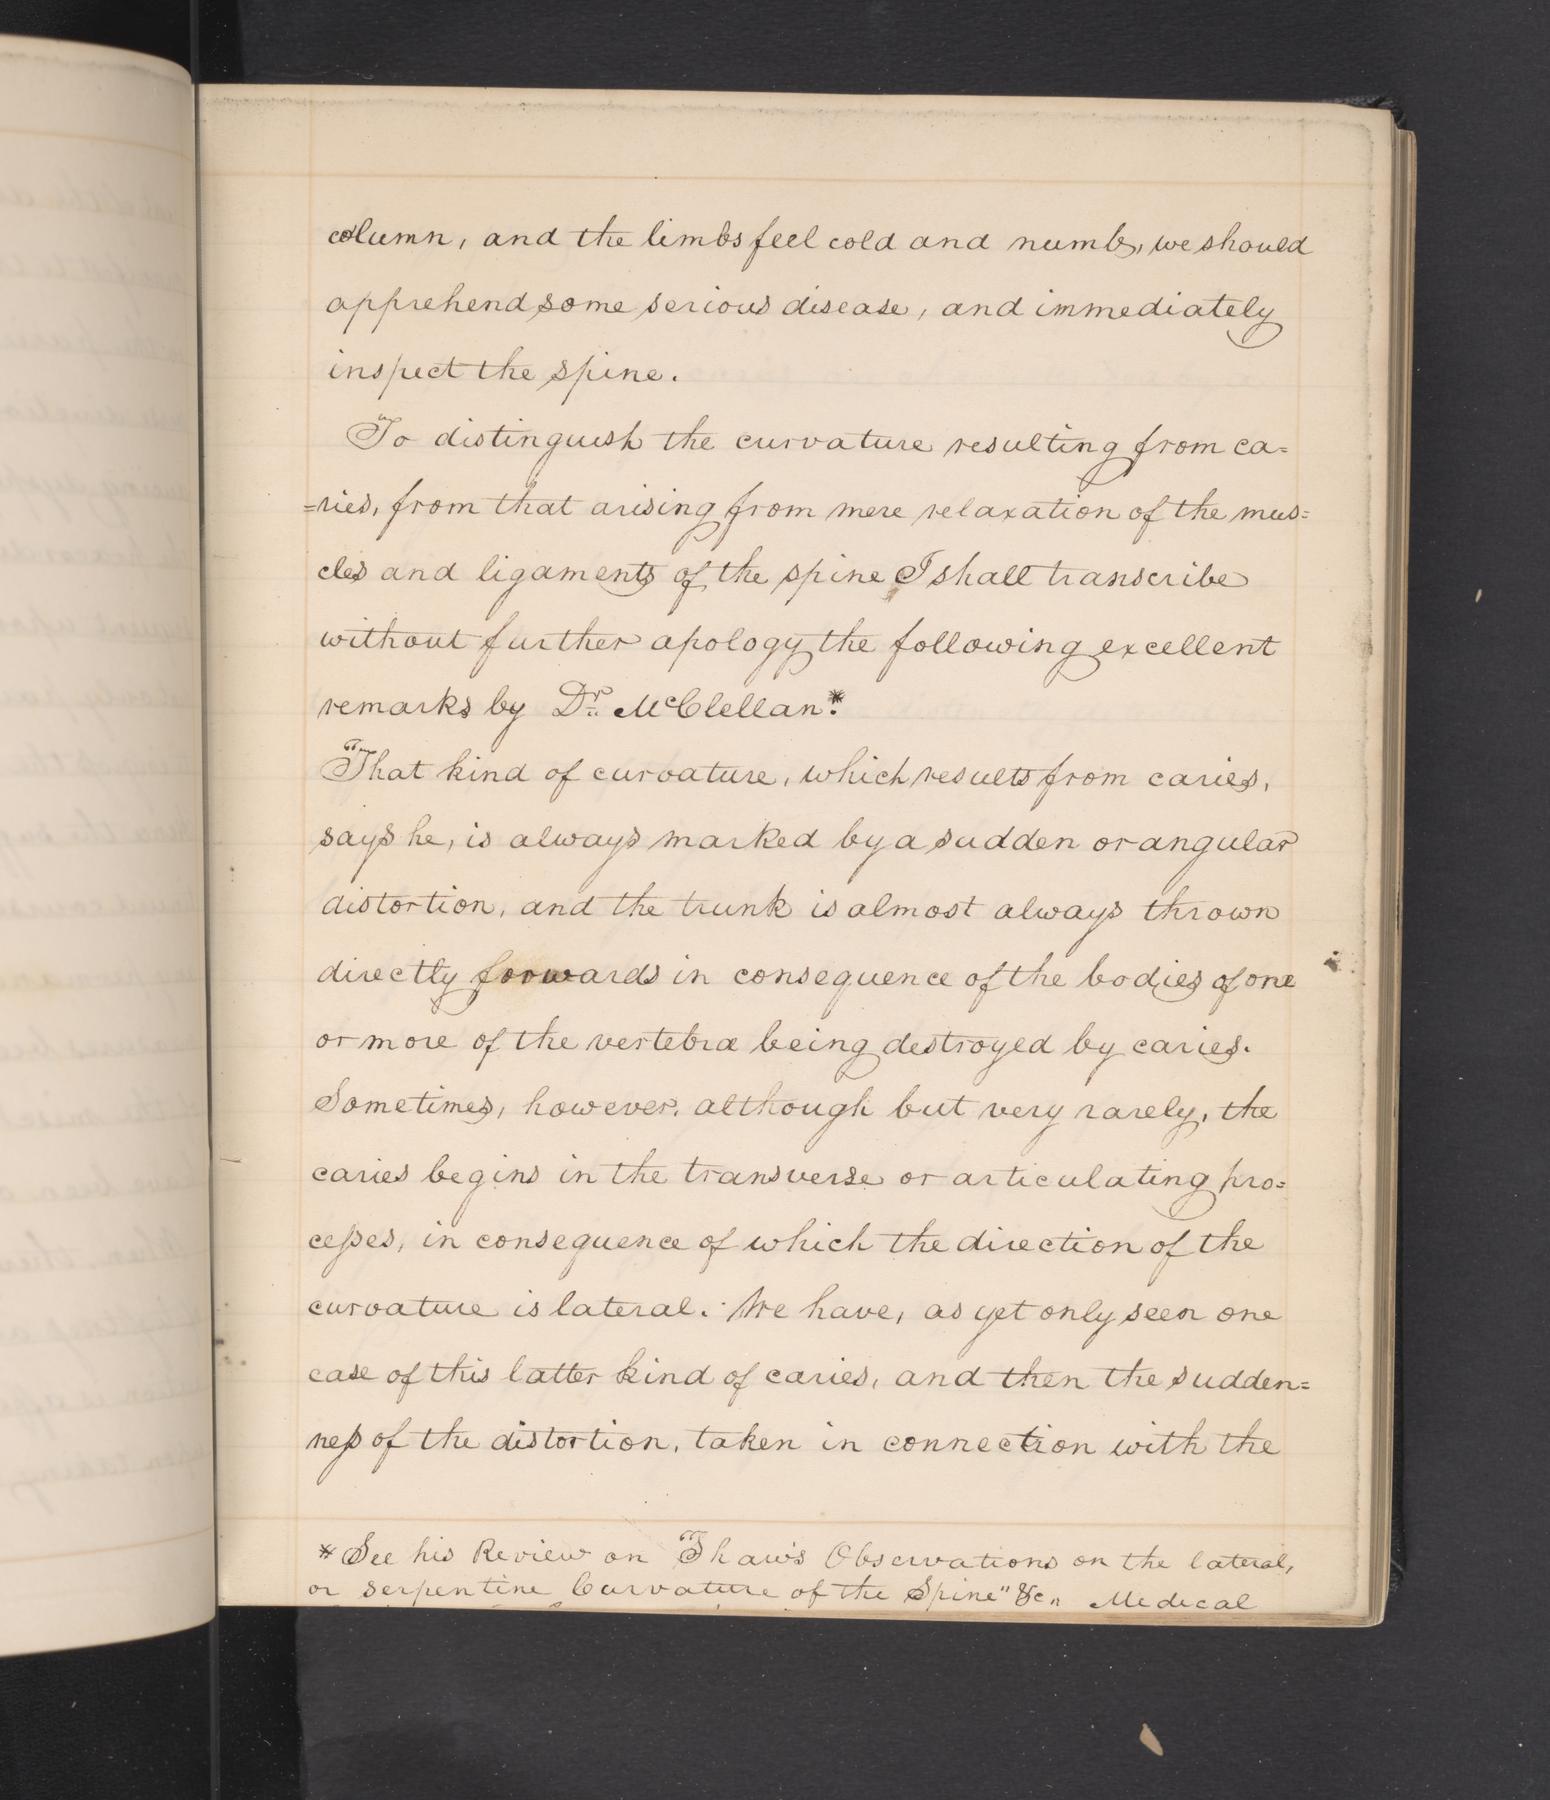 column, and the limbs feel cold and numb, we should
apprehend some serious disease, and immediately
inspect the spine.
To distinguish the curvature resulting from ca=
=ries, from that arising from mere relaxation of the mus=
cles and ligaments of the spine I shall transcribe
without further apology the following excellent
remarks by Dr. McClellan.*
"That kind of curvature, which results from caries,
says he, is always marked by a sudden or angular
distortion, and the trunk is almost always thrown
directly forwards in consequence of the bodies of one
or more of the vertebræ being destroyed by caries.
Sometimes, however, although but very rarely, the
caries begins in the transverse or articulating pro=
cesses, in consequence of which the direction of the
curvature is lateral. We have, as yet only seen one
case of this latter kind of caries, and then the sudden=
ness of the distortion, taken in connection with the
* See his Review on "Shaw's Observations on the lateral,
or serpentine Curvature of the Spine" &c. Medical